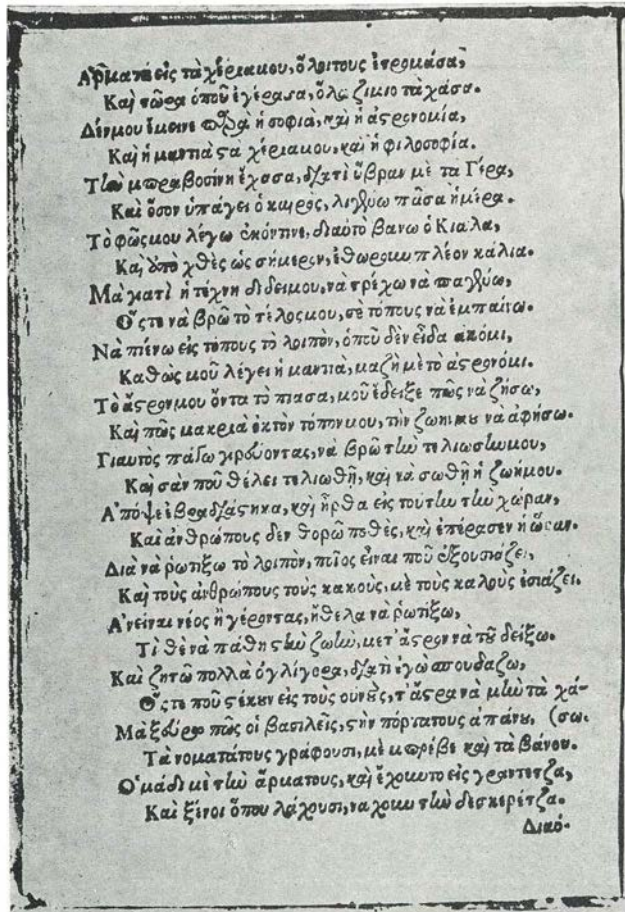 Αρματα εἰς τὰ χέριαμου, ὅλοιτους ἐτρομάσα,
Καὶ τώρα ὁποῦ ἐγέρασα, ὅλο ζιμιο τὰ χάσα.
Δένμου ἔμεινε παρὰ ἡ σοφιὰ, καὶ ἡ ἀστρονομία,
Καὶ ἡ μαντιὰ στα χέριαμου, καὶ ἡ φιλοσοφία.
Τὴν μπραβοσίνη ἔχασα, διατὶ ὕβραν μὲ τα Γέρα,
Καὶ ὅσον ὑπάγει ὁ καιρὸς, λιγαίνω πᾶσα ἡμέρα.
Τὸ φῶςμου λέγω ἐκόντινε, διαὐτὸ βανω ὁ Κιαλα,
Καὶ ἀπὸ χθὲς ὡς σήμερον, ἐθώρουν πλέον κάλια.
Μὰ γιατὶ ἡ τέχνη δίδειμου, νὰ τρέχω νὰ παγαίνω,
Οὖστε νὰ βρῶ τὸ τέλοςμου, σὲ τόπους νὰ ἐμπαίνω.
Νὰ πιένω εἰς τόπους τὸ λοιπὸν, ὁποῦ δὲν εἶδα ακόμι,
Καθὼς μοῦ λέγει ἡ μαντιὰ, μαζὴ μὲ τὸ ἀστρονόμι.
Τὸ ἄστρονμου ὄντα τὸ πιασα, μοῦ ἔδειξε πῶς νὰ ζήσω,
Καὶ πῶς μακριὰ ἐκτὸν τόπονμου, τὴν ζωήνμου νὰ ἀφήσω.
Γιαυτὸς πάγω γυρεύοντας, νὰ βρῶ τὴν τελιωσίνμου,
Καὶ σὰν ποῦ θέλει τελιωθῆ, καὶ νὰ σωθῆ ἡ ζωήμου.
Απόψε ἐβραδιάστηκα, καὶ ἦρθα εἰς τούτην τὴν χώραν,
Καὶ ἀνθρώπους δεν θορῶ ποθὲς, καὶ ἐπέρασεν ἡ ὥραν.
Διὰ νὰ ρωτίξω τὸ λοιπὸν, ποῖος εἶναι ποῦ ἐξουσιάζει,
Καὶ τοὺς ἀνθρώπους τοὺς κακοὺς, μὲ τοὺς καλοὺς ἐσιάζει.
Α'νεῖναι νέος ἢ γέροντας, ἤθελα νὰ ρωτίξω,
Τὶ θὲ νὰ πάθη στὴν ζωὴν, μετ' ἄστρον νὰ τοῦ δείξω.
Καὶ ζητῶ πολλὰ ὀγλίγορα, διατὶ ἐγὼ σπουδαζω,
Οὖστε ποῦ στέκουν εἰς τοὺς οὐνοὺς, τ' ἄστρα νὰ μὴν τὰ χά-
Μὰ ξεύρω πῶς οἱ βασιλεῖς, στὴν πόρτατους ἀπάνω, (σω.
Τὰ νοματάτους γράφουσι, μὲ μπρέβε καὶ τὰ βάνου.
Ο'μάδι μὲ τὴν ἄρματους, καὶ ἔχουντο εἰς γραντετζα,
Καὶ ξένοι ὅπου λάχουσι, να χουν τὴν δεσκερέτζα.
Διαό-